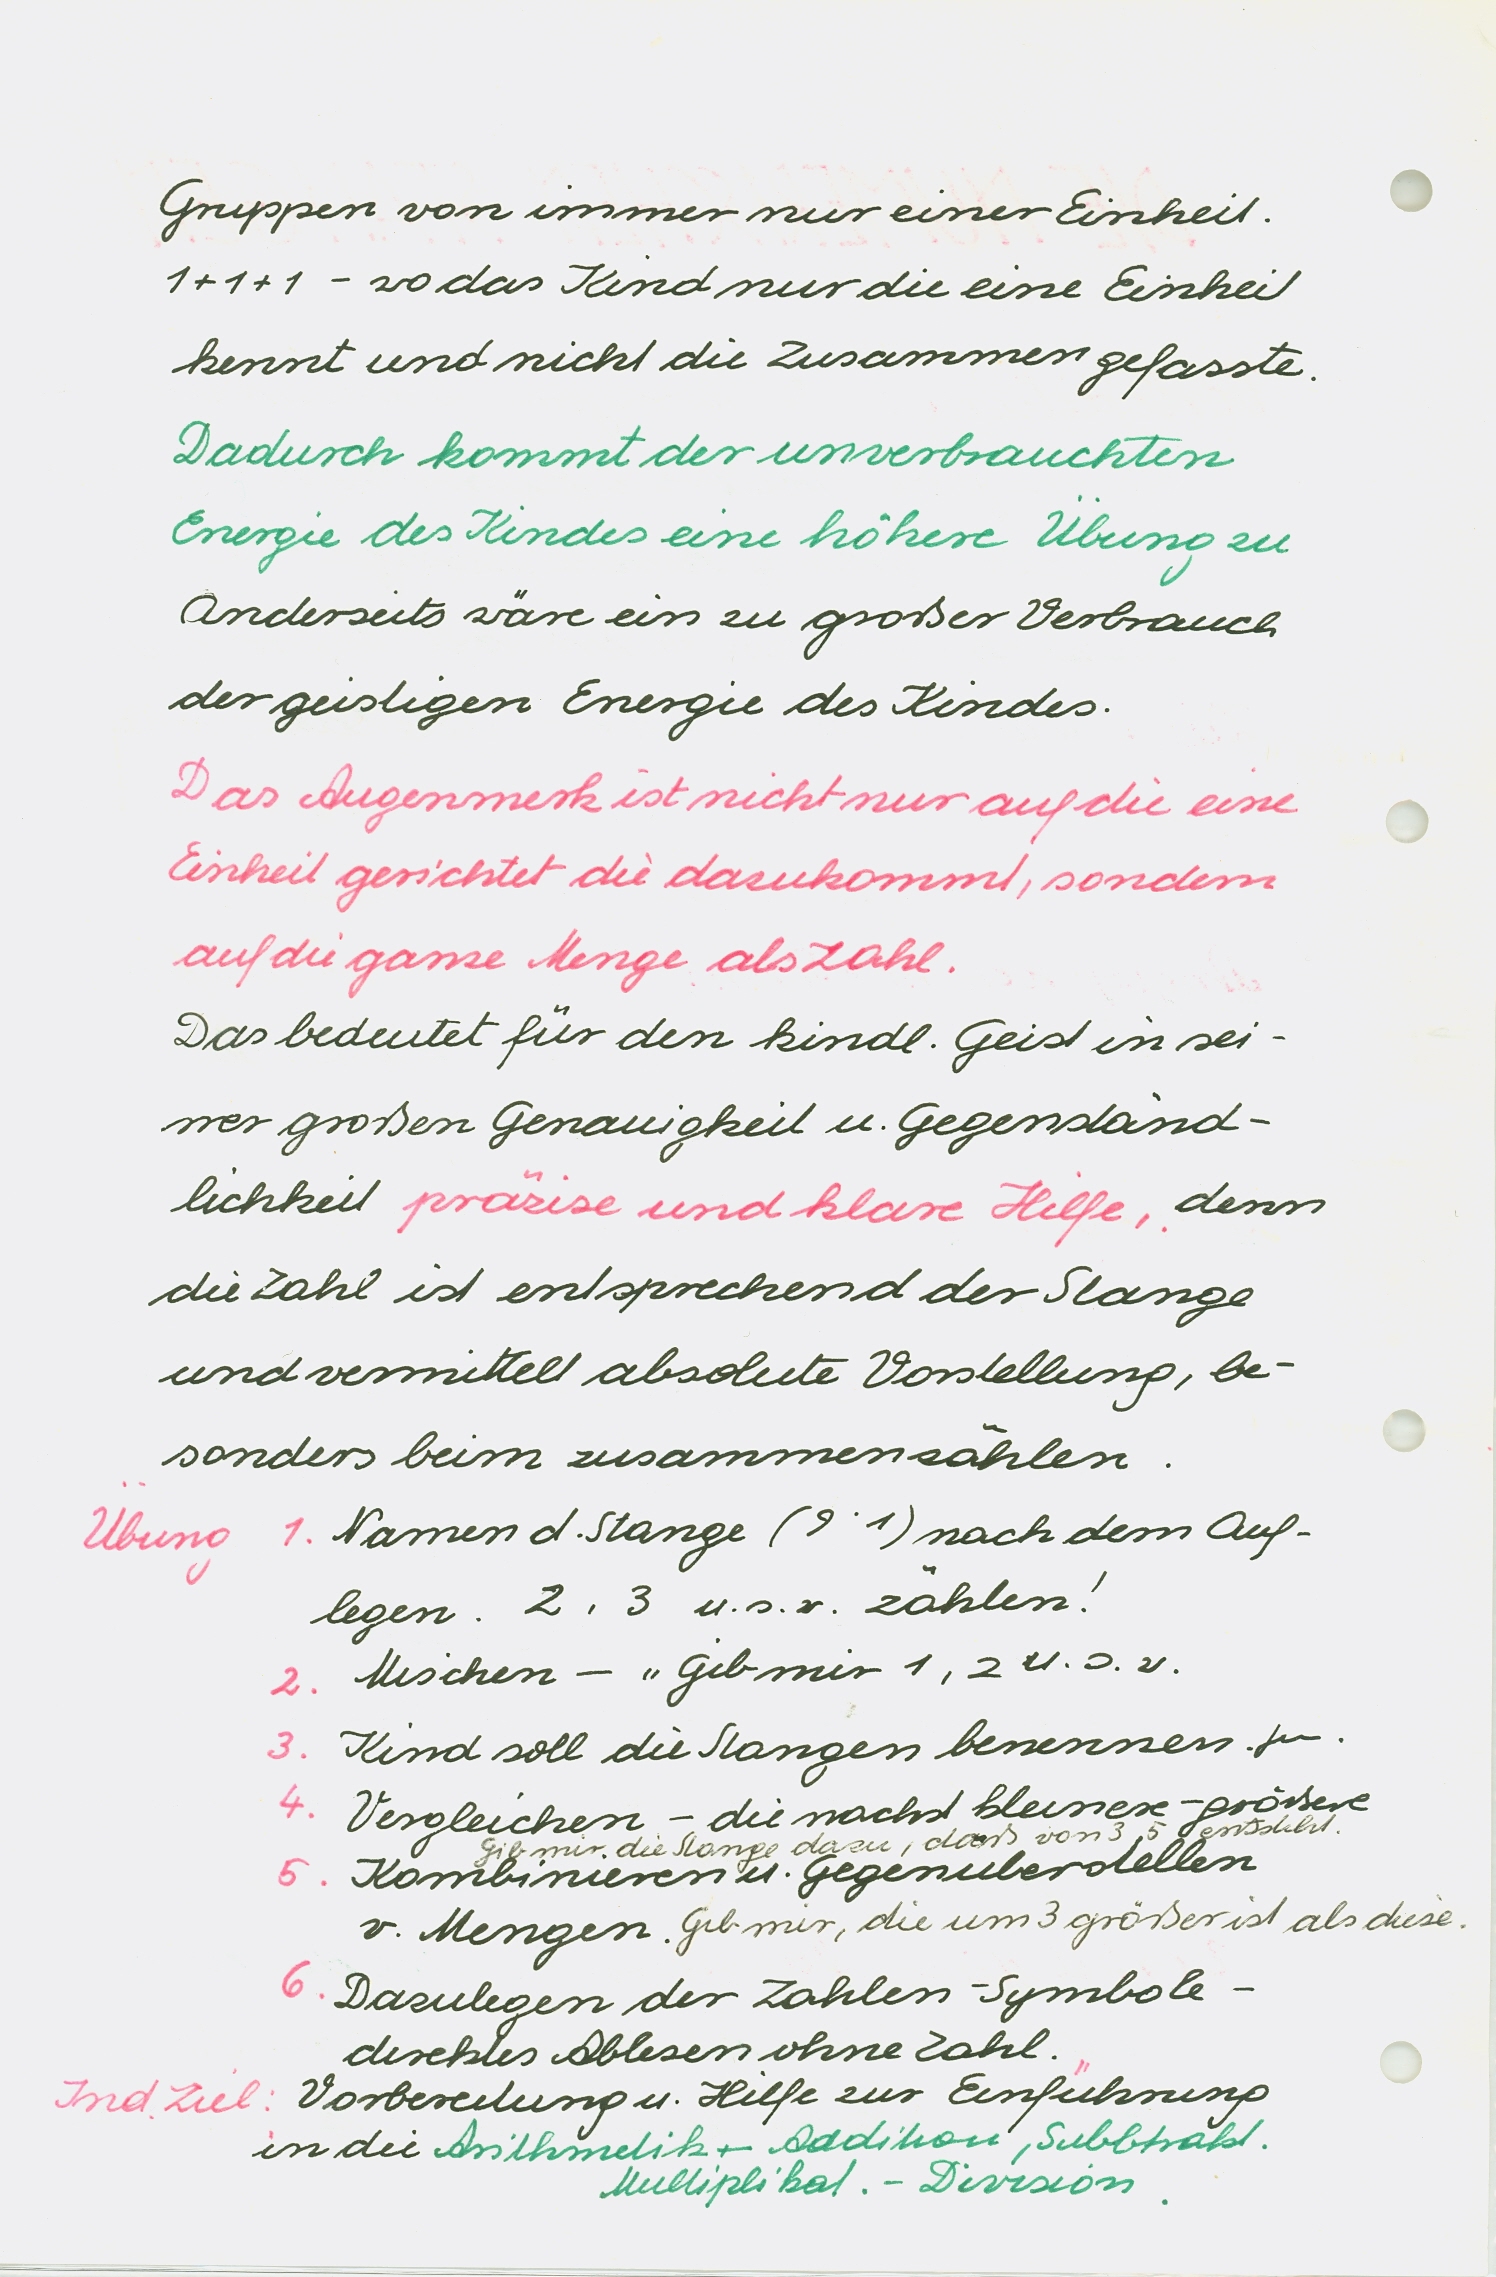 Gruppen von immer nur einer Einheit.
1+1+1 - wo das Kind nur die eine Einheit
kennt und nicht die Zusammengefasste.
Dadurch kommt der unverbrauchten
Energie des Kindes eine höhere Übung zu
Anderseits wäre ein zu großer Verbrauch
der geistigen Energie des Kindes.
Das Augenmerk ist nicht nur auf die eine
Einheit gerichtet die dazukommt, sondern
auf die ganze Menge als Zahl.
Das bedeutet für den kindl. Geist in sei-
ner großen Genauigkeit u. Gegenständ-
lichkeit präzise und klare Hilfe, denn
die Zahl ist entsprechend der Stange
und vermittelt absolute Vorstellung, be-
sonders beim zusammenzählen.
Übung 1. Namen d. Stange (9 1) nach dem Auf-
legen. 2, 3 u.s.w. zählen!
2. Mischen - „Gib mir 1, 2 u.s.w.
3. Kind soll die Stangen benennen.
4. Vergleichen - die nächst kleinere - größere
Gib mir die Stange dazu, daß von 3 5 entsteht.
5. Kombinieren u. Gegenüberstellen
v. Mengen. Gib mir, die um 3 größer ist als diese.
6. Dazulegen der Zahlen-Symbole -
direktes Ablesen ohne Zahl.
Ind. Ziel: Vorbereitung u. Hilfe zur Einführung
in die Arithmetik + Addition, Subbtrakt.
Multiplikat. - Division.